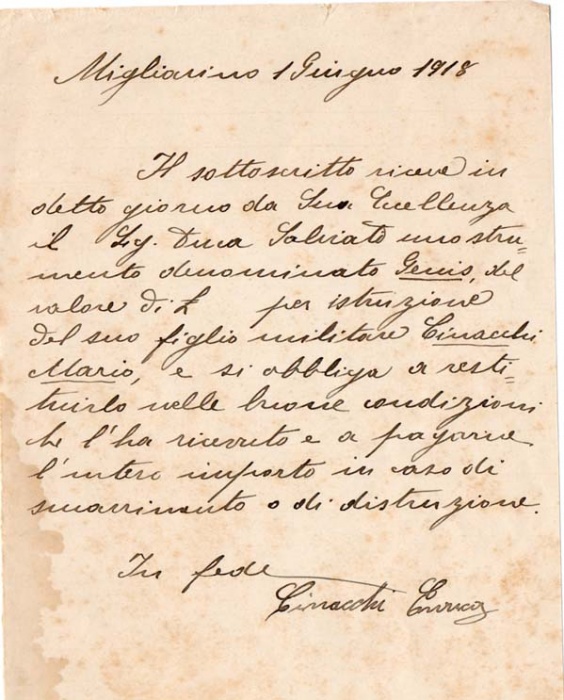 Migliarino 1 Giugno 1918
Il sottoscritto riceve in
detto giorno da Sua Eccellenza
il Sig. Duca Salviati uno stru-
mento denominato Genis, del
valore di £ per istruzione
del suo figlio militare Cinacchi
Mario, e si obbliga a resti-
tuirlo nelle buone condizioni
che l'ha ricevuto e a pagarne
l'intero importo in caso di
smarrimento o di distruzione.
In fede
Cinacchi Enrico